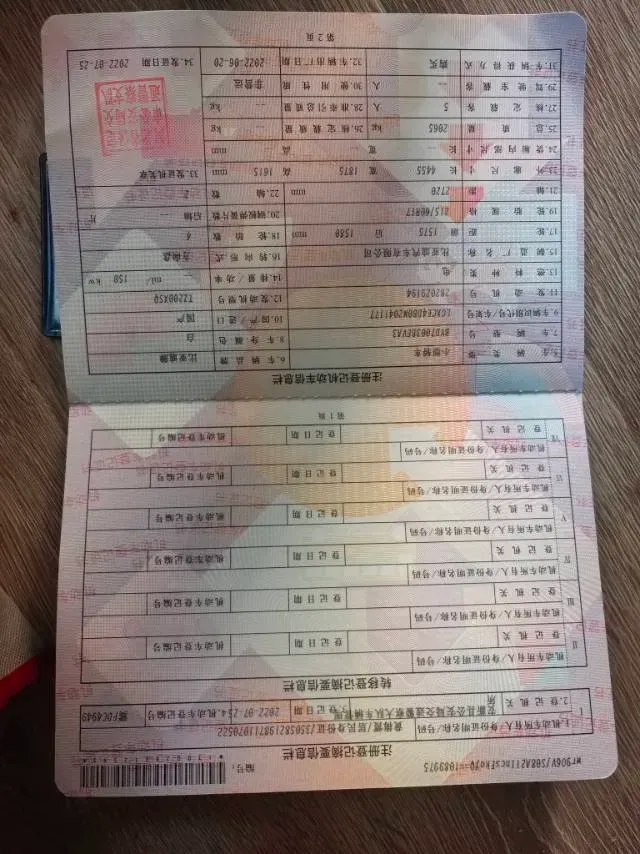 注册登记摘要信息栏
编号:
1.机动车所有人/身份证明名称/号码
2.登记机关
登记日期 2022-07-25
4.机动车登记编号 冀FDC4949
转移登记摘要信息栏
Ⅱ 机动车所有人/身份证明名称/号码
登记机关 登记日期 机动车登记编号
Ⅲ 机动车所有人/身份证明名称/号码
登记机关 登记日期 机动车登记编号
Ⅳ 机动车所有人/身份证明名称/号码
登记机关 登记日期 机动车登记编号
Ⅴ 机动车所有人/身份证明名称/号码
登记机关 登记日期 机动车登记编号
Ⅵ 机动车所有人/身份证明名称/号码
登记机关 登记日期 机动车登记编号
Ⅶ 机动车所有人/身份证明名称/号码
登记机关 登记日期 机动车登记编号
第1页
注册登记机动车信息栏
5.车辆类型 小型轿车 6.车辆品牌 比亚迪牌
7.车辆型号 BYD7003BEVA3 8.车身颜色 白
9.车辆识别代号/车架号 10.国产/进口 国产
11.发动机号 2B2029194 12.发动机型号 TZ200XSQ
13.燃料种类 电 14.排量/功率 -- ml/ 150 kw
15.制造厂名称 比亚迪汽车有限公司 16.转向形式 方向盘
17.轮距 前 1575 后 1580 mm 18.轮胎数 4
19.轮胎规格 215/60R17 20.钢板弹簧片数 后轴 -- 片
21.轴距 2720 mm 22.轴数 2
23.外廓尺寸 长 4455 宽 1875 高 1615 mm 33.发证机关章
24.货厢内部尺寸 长 -- 宽 -- 高 -- mm
25.总质量 2065 kg 26.核定载质量 -- kg
27.核定载客 5 人 28.准牵引总质量 -- kg
29.驾驶室载客 -- 人 30.使用性质 非营运
31.车辆获得方式 购买 32.车辆出厂日期 2022-06-20 34.发证日期 2022-07-25
第2页